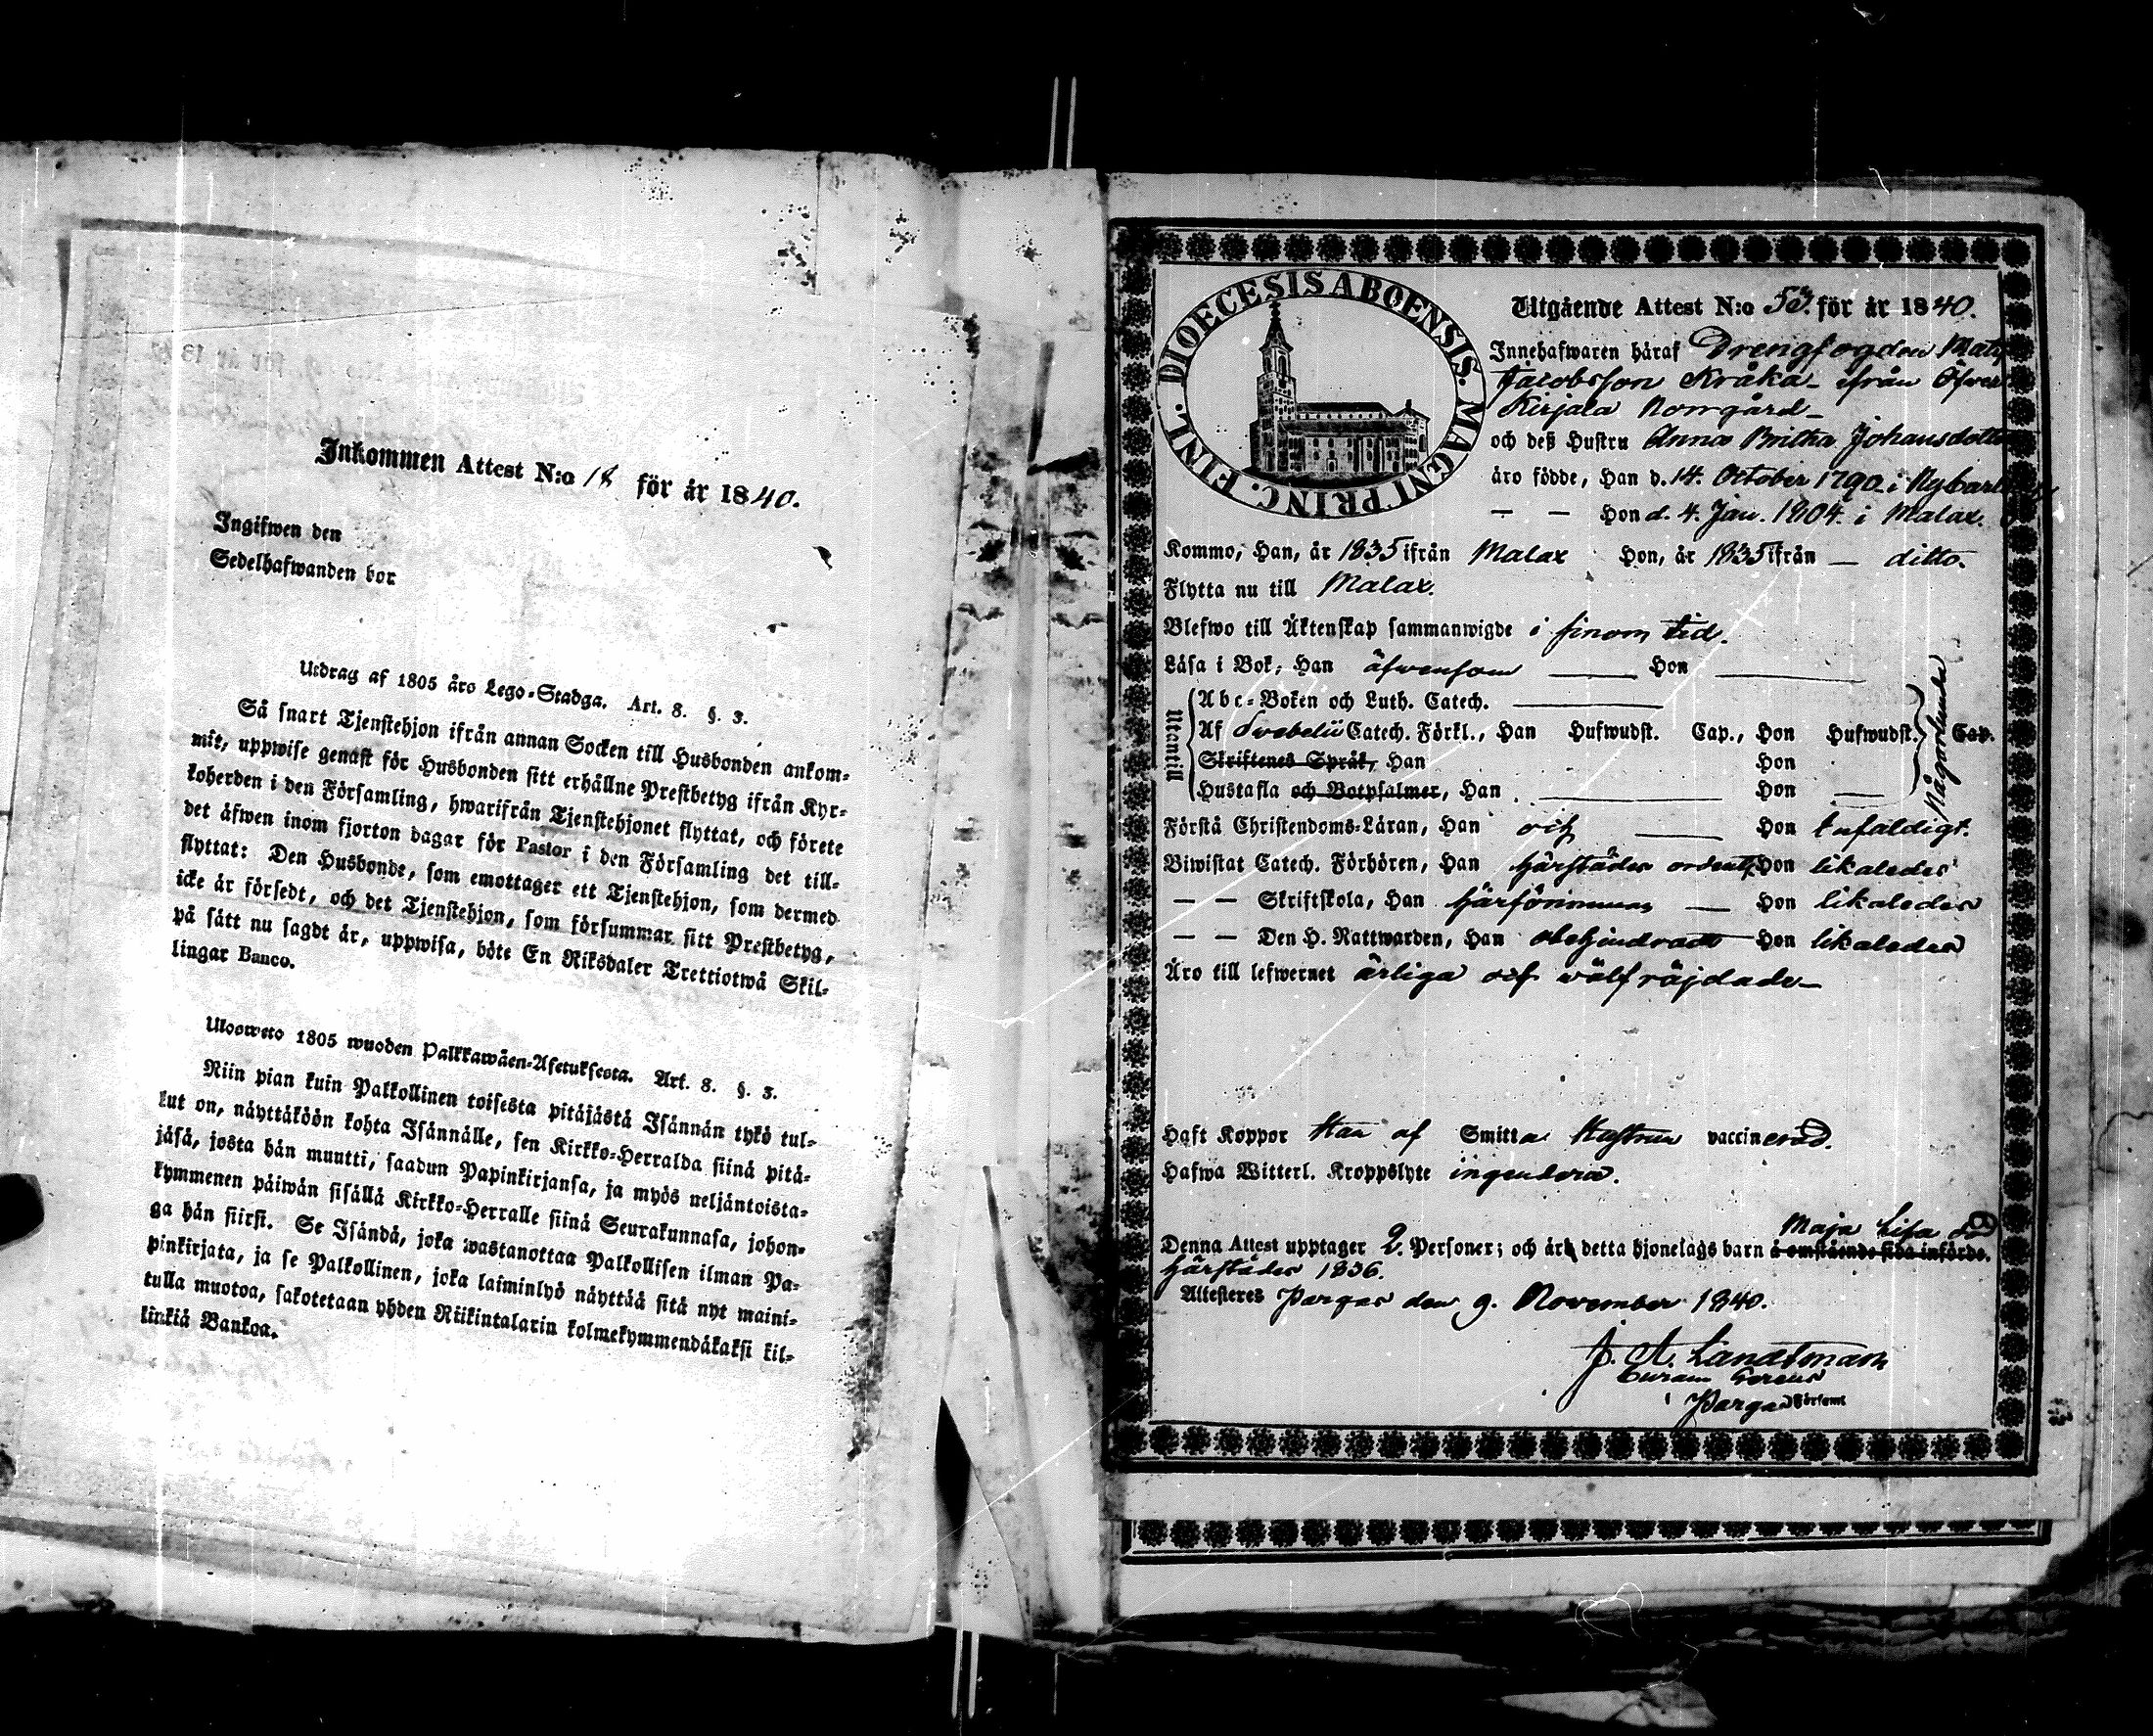 Inkommen Attest N:o 18 för år 1840.
Ingifwen den
Sedelhafwanden bor
Utdrag af 1805 års Lego-Stadga. Art. 8. §. 3.
Så snart Tjenstehjon ifrån annan Socken till Husbonden ankom-
mit, uppwise genast för Husbonden sitt erhållne Prestbetyg ifrån Kyr-
koherden i den Församling, hwarifrån Tjenstehjonet flyttat, och förete
det äfwen inom fjorton dagar för Pastor i den Församling det till-
flyttat: Den Husbonde, som emottager ett Tjenstehjon, som dermed
icke är försedt, och det Tjenstehjon, som försummar sitt Prestbetyg,
på sätt nu sagdt är, uppwisa, böte En Riksdaler Trettiotwå Skil-
lingar Banco.
Uloswето 1805 wuoden Palkkawäen-Asetuksesta. Art. 8. §. 3.
Niin pian kuin Palkollinen toisesta pitäjästä Isännän tykö tul-
lut on, näyttäköön kohta Isännälle, sen Kirkko-Herralda siinä pitä-
jäsä, josta hän muutti, saadun Papinkirjansa, ja myös neljäntoista-
kymmenen päiwän sisällä Kirkko-Herralle siinä Seurakunnasa, johon-
ga hän siirsi. Se Isändä, joka wastanottaa Palkollisen ilman Pa-
pinkirjata, ja se Palkollinen, joka laiminlyö näyttää sitä nyt maini-
tulla muotoa, sakotetaan yhden Riikintalarin kolmekymmendäkaksi kil-
linkiä Bankoa.
DIOECESIS ABOENSIS. MAGNI PRINC. FINL.
Utgående Attest N:o 53. för år 1840.
Innehafwaren häraf Drengfogden Mats
Jacobsson Kråka - ifrån Öfwer
Kirjala Norrgård -
och deß Hustru Anna Britha Johansdotter
äro födde, Han d. 14. October 1790 i Nycarleby
— — Hon d. 4. Jan. 1804. i Malax.
Kommo, Han, år 1835 ifrån Malax Hon, år 1835 ifrån — ditto.
Flytta nu till Malax.
Blefwo till Äktenskap sammanwigde i sinom tid.
Läsa i Bok, Han äfwensom — Hon —
Utentill
Abc-Boken och Luth. Catech. —
Af Swebelii Catech. Förkl., Han Hufwudst. Cap., Hon Hufwudst. Cap.
Skriftenes Språk, Han Hon
Hustafla och Botpsalmer, Han — Hon —
Någorlunda
Förstå Christendoms-Läran, Han och — Hon enfaldigt.
Biwistat Catech. Förhören, Han härstädes ordentl. Hon likaledes
— — Skriftskola, Han härförinnan — Hon likaledes
— — Den H. Nattwarden, Han obehindradt Hon likaledes
Äro till lefwernet ärliga och wälfräjdade -
Haft Koppor Han af Smitta Hustrun vaccinerad.
Hafwa Witterl. Kroppslyte ingendera.
Maja Lisa död
Denna Attest upptager 2. Personer; och är detta hjonelags barn å omstående sida införde.
härstädes 1836.
Attesteres Pargas den 9. November 1840.
J. A. Landtman
Curam Gerens
i Pargas Förſaml